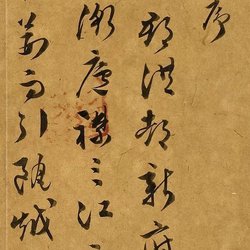 序
郡洪都新府
衡廬襟三江
荊而引甌越